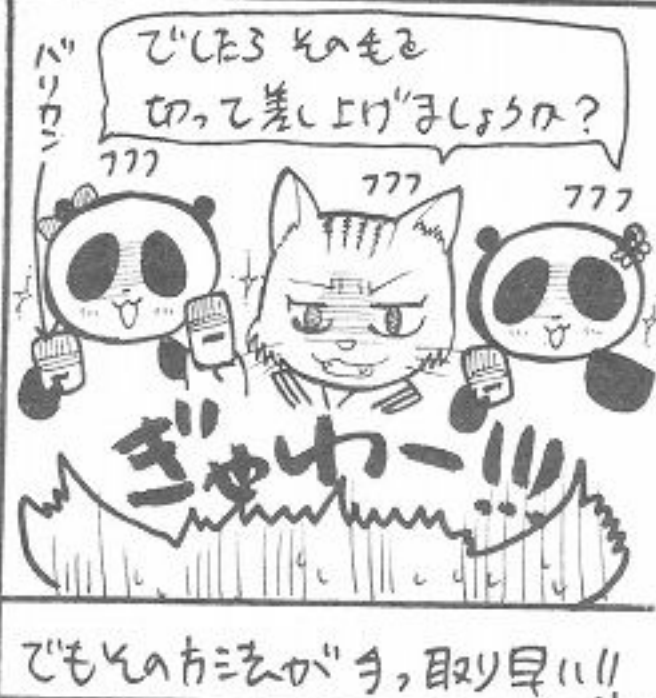 でしたら その毛を
切って差し上げましょうか?
バリカン
フフフ
フフフ
フフフ
ぎゃわー!!!
でもその方法が手っ取り早い!!